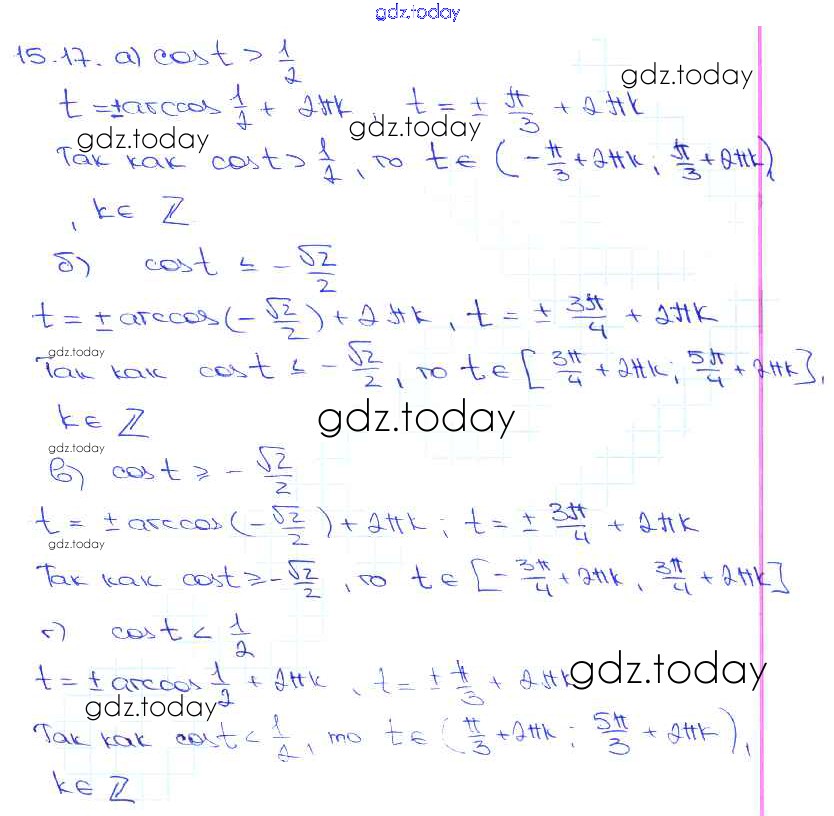 gdz.today
15.17. а) cost > 1/2
gdz.today
t = ± arccos 1/2 + 2πk, t = ± π/3 + 2πk
gdz.today gdz.today
Так как cost > 1/2, то t ∈ (-π/3 + 2πk; π/3 + 2πk)
, k ∈ ℤ
б) cost ≤ -√2/2
t = ± arccos(-√2/2) + 2πk, t = ± 3π/4 + 2πk
gdz.today
Так как cost ≤ -√2/2, то t ∈ [3π/4 + 2πk; 5π/4 + 2πk],
k ∈ ℤ
gdz.today
gdz.today
в) cost ≥ -√2/2
t = ± arccos(-√2/2) + 2πk; t = ± 3π/4 + 2πk
gdz.today
Так как cost ≥ -√2/2, то t ∈ [-3π/4 + 2πk, 3π/4 + 2πk]
г) cost < 1/2
t = ± arccos 1/2 + 2πk, t = ± π/3 + 2πk
gdz.today
gdz.today
Так как cost < 1/2, то t ∈ (π/3 + 2πk; 5π/3 + 2πk),
k ∈ ℤ